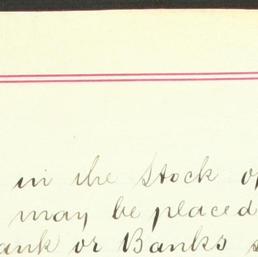 in the Stock of
may be placed
ank or Banks s